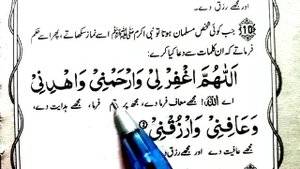 اور مجھے رزق دے۔
10 جب کوئی شخص مسلمان ہوتا تو نبی اکرم ﷺ اسے نماز سکھاتے، پھر اسے حکم
فرماتے کہ ان کلمات سے دعا کیا کرے:
اَللّٰهُمَّ اغْفِرْ لِيْ وَارْحَمْنِيْ وَاهْدِنِيْ
اے اللہ! مجھے معاف فرما دے، مجھ پر فرما، مجھے ہدایت دے،
وَعَافِنِيْ وَارْزُقْنِيْ
مجھے عافیت دے اور مجھے رزق